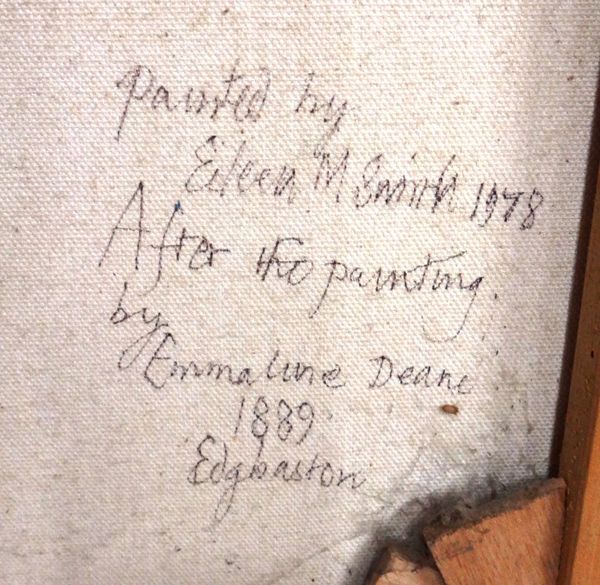 Painted by
Eileen M Smith 1978
After the painting.
by
Emmaline Deane
1889
Edgbaston